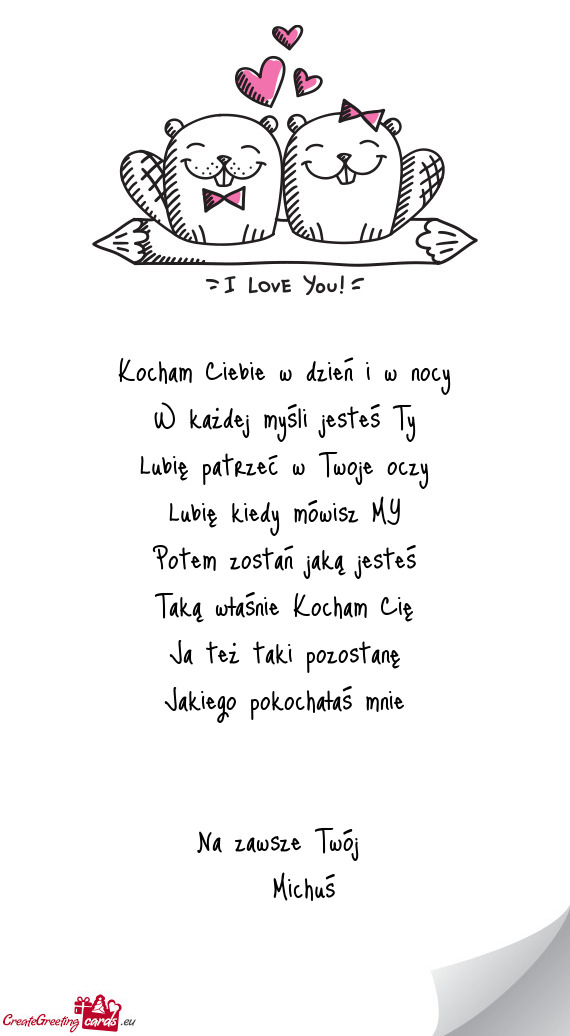 I LOVE YOU!
Kocham Ciebie w dzień i w nocy
W każdej myśli jesteś Ty
Lubię patrzeć w Twoje oczy
Lubię kiedy mówisz MY
Potem zostań jaką jesteś
Taką właśnie Kocham Cię
Ja też taki pozostanę
Jakiego pokochałaś mnie
Na zawsze Twój
Michuś
CreateGreeting cards .eu